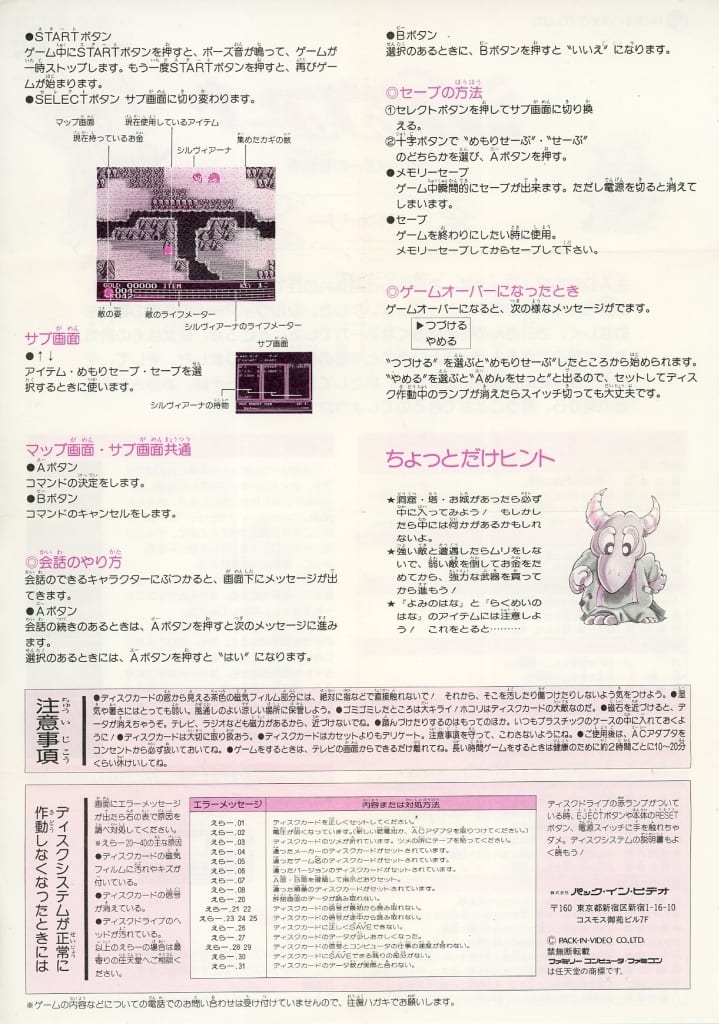 ●STARTボタン
ゲーム中にSTARTボタンを押すと、ポーズ音が鳴って、ゲームが
一時ストップします。もう一度STARTボタンを押すと、再びゲー
ムが始まります。
●SELECTボタン サブ画面に切り変わります。
マップ画面
現在使用しているアイテム
現在持っているお金
集めたカギの数
シルヴィアーナ
GOLD 00000 ITEM KEY 1
004
042
敵の姿
敵のライフメーター
シルヴィアーナのライフメーター
サブ画面
●↑↓
アイテム・めもりセーブ・セーブを選
択するときに使います。
サブ画面
シルヴィアーナの持物
マップ画面・サブ画面共通
●Aボタン
コマンドの決定をします。
●Bボタン
コマンドのキャンセルをします。
◎会話のやり方
会話のできるキャラクターにぶつかると、画面下にメッセージが出
てきます。
●Aボタン
会話の続きのあるときは、Aボタンを押すと次のメッセージに進み
ます。
選択のあるときには、Aボタンを押すと“はい”になります。
●Bボタン
選択のあるときに、Bボタンを押すと“いいえ”になります。
◎セーブの方法
①セレクトボタンを押してサブ画面に切り換
える。
②十字ボタンで“めもりせーぶ”・“せーぶ”
のどちらかを選び、Aボタンを押す。
●メモリーセーブ
ゲーム中瞬間的にセーブが出来ます。ただし電源を切ると消えて
しまいます。
●セーブ
ゲームを終わりにしたい時に使用。
メモリーセーブしてからセーブして下さい。
◎ゲームオーバーになったとき
ゲームオーバーになると、次の様なメッセージがでます。
▶つづける
やめる
“つづける”を選ぶと“めもりせーぶ”したところから始められます。
“やめる”を選ぶと“Aめんをせっと”と出るので、セットしてディス
ク作動中のランプが消えたらスイッチ切っても大丈夫です。
ちょっとだけヒント
★洞窟・塔・お城があったら必ず
中に入ってみよう！ もしかし
たら中には何かがあるかもしれ
ないよ。
★強い敵と遭遇したらムリをしな
いで、弱い敵を倒してお金をた
めてから、強力な武器を買って
から進もう！
★『よみのはな』と『らくめいの
はな』のアイテムには注意しよ
う！ これをとると………
注意事項
●ディスクカードの窓から見える茶色の磁気フィルム部分には、絶対に指などで直接触れないで！ それから、そこを汚したり傷つけたりしないよう気をつけよう。●湿
気や暑さにはとっても弱い。風通しのよい涼しい場所に保管しよう。●ゴミゴミしたところは大キライ！ホコリはディスクカードの大敵なのだ。●磁石を近づけると、デ
ータが消えちゃうぞ。テレビ、ラジオなども磁力があるから、近づけないでね。●踏んづけたりするのはもってのほか。いつもプラスチックのケースの中に入れておくよ
うに！●ディスクカードは大切に取り扱おう。●ディスクカードはカセットよりもデリケート。注意事項を守って、こわさないようにね。●ご使用後は、ACアダプタを
コンセントから必ず抜いておいてね。●ゲームをするときは、テレビの画面からできるだけ離れてね。長い時間ゲームをするときは健康のために約2時間ごとに10〜20分
くらい休けいしてね。
ディスクシステムが正常に
作動しなくなったときには
画面にエラーメッセージ
が出たら右の表で原因を
調べ対処してください。
※えらー20〜40の主な原因
●ディスクカードの磁気
フィルムに汚れやキズが
付いている。
●ディスクカードの信号
が消えている。
●ディスクドライブのヘ
ッドが汚れている。
以上のえらーの場合は最
寄りの任天堂へご相談く
ださい。
エラーメッセージ 内容または対処方法
えらー.01 ディスクカードを正しくセットしてください。
えらー.02 電圧が弱くなっています。（新しい乾電池か、ACアダプタを取りつけてください。）
えらー.03 ディスクカードのツメが折れています。ツメの所にテープを貼ってください。
えらー.04 違ったメーカーのディスクカードがセットされています。
えらー.05 違ったゲーム名のディスクカードがセットされています。
えらー.06 違ったバージョンのディスクカードがセットされています。
えらー.07 A面・B面を確認して指示どおりセット。
えらー.08 違った順番のディスクカードがセットされています。
えらー.20 許諾画面のデータが読み取れない。
えらー.21 22 ディスクカードの信号が最初から読み取れない。
えらー.23 24 25 ディスクカードの信号が途中から読み取れない。
えらー.26 ディスクカードに正しくSAVEできない。
えらー.27 ディスクカードのデータが少しおかしくなった。
えらー.28 29 ディスクカードの信号とコンピュータの仕事の速度が合わない。
えらー.30 ディスクカードにSAVEできる残りの部分がない。
えらー.31 ディスクカードのデータ数が実際と合わない。
ディスクドライブの赤ランプがついて
いる時、EJECTボタンや本体のRESET
ボタン、電源スイッチに手を触れちゃ
ダメ。ディスクシステムの説明書もよ
く読もう！
株式会社 パック・イン・ビデオ
〒160 東京都新宿区新宿1-16-10
コスモス御苑ビル7F
© PACK-IN-VIDEO CO.,LTD.
禁無断転載
ファミリー コンピュータ・ファミコン
は任天堂の商標です。
※ゲームの内容などについての電話でのお問い合わせは受け付けていませんので、往復ハガキでお願いします。